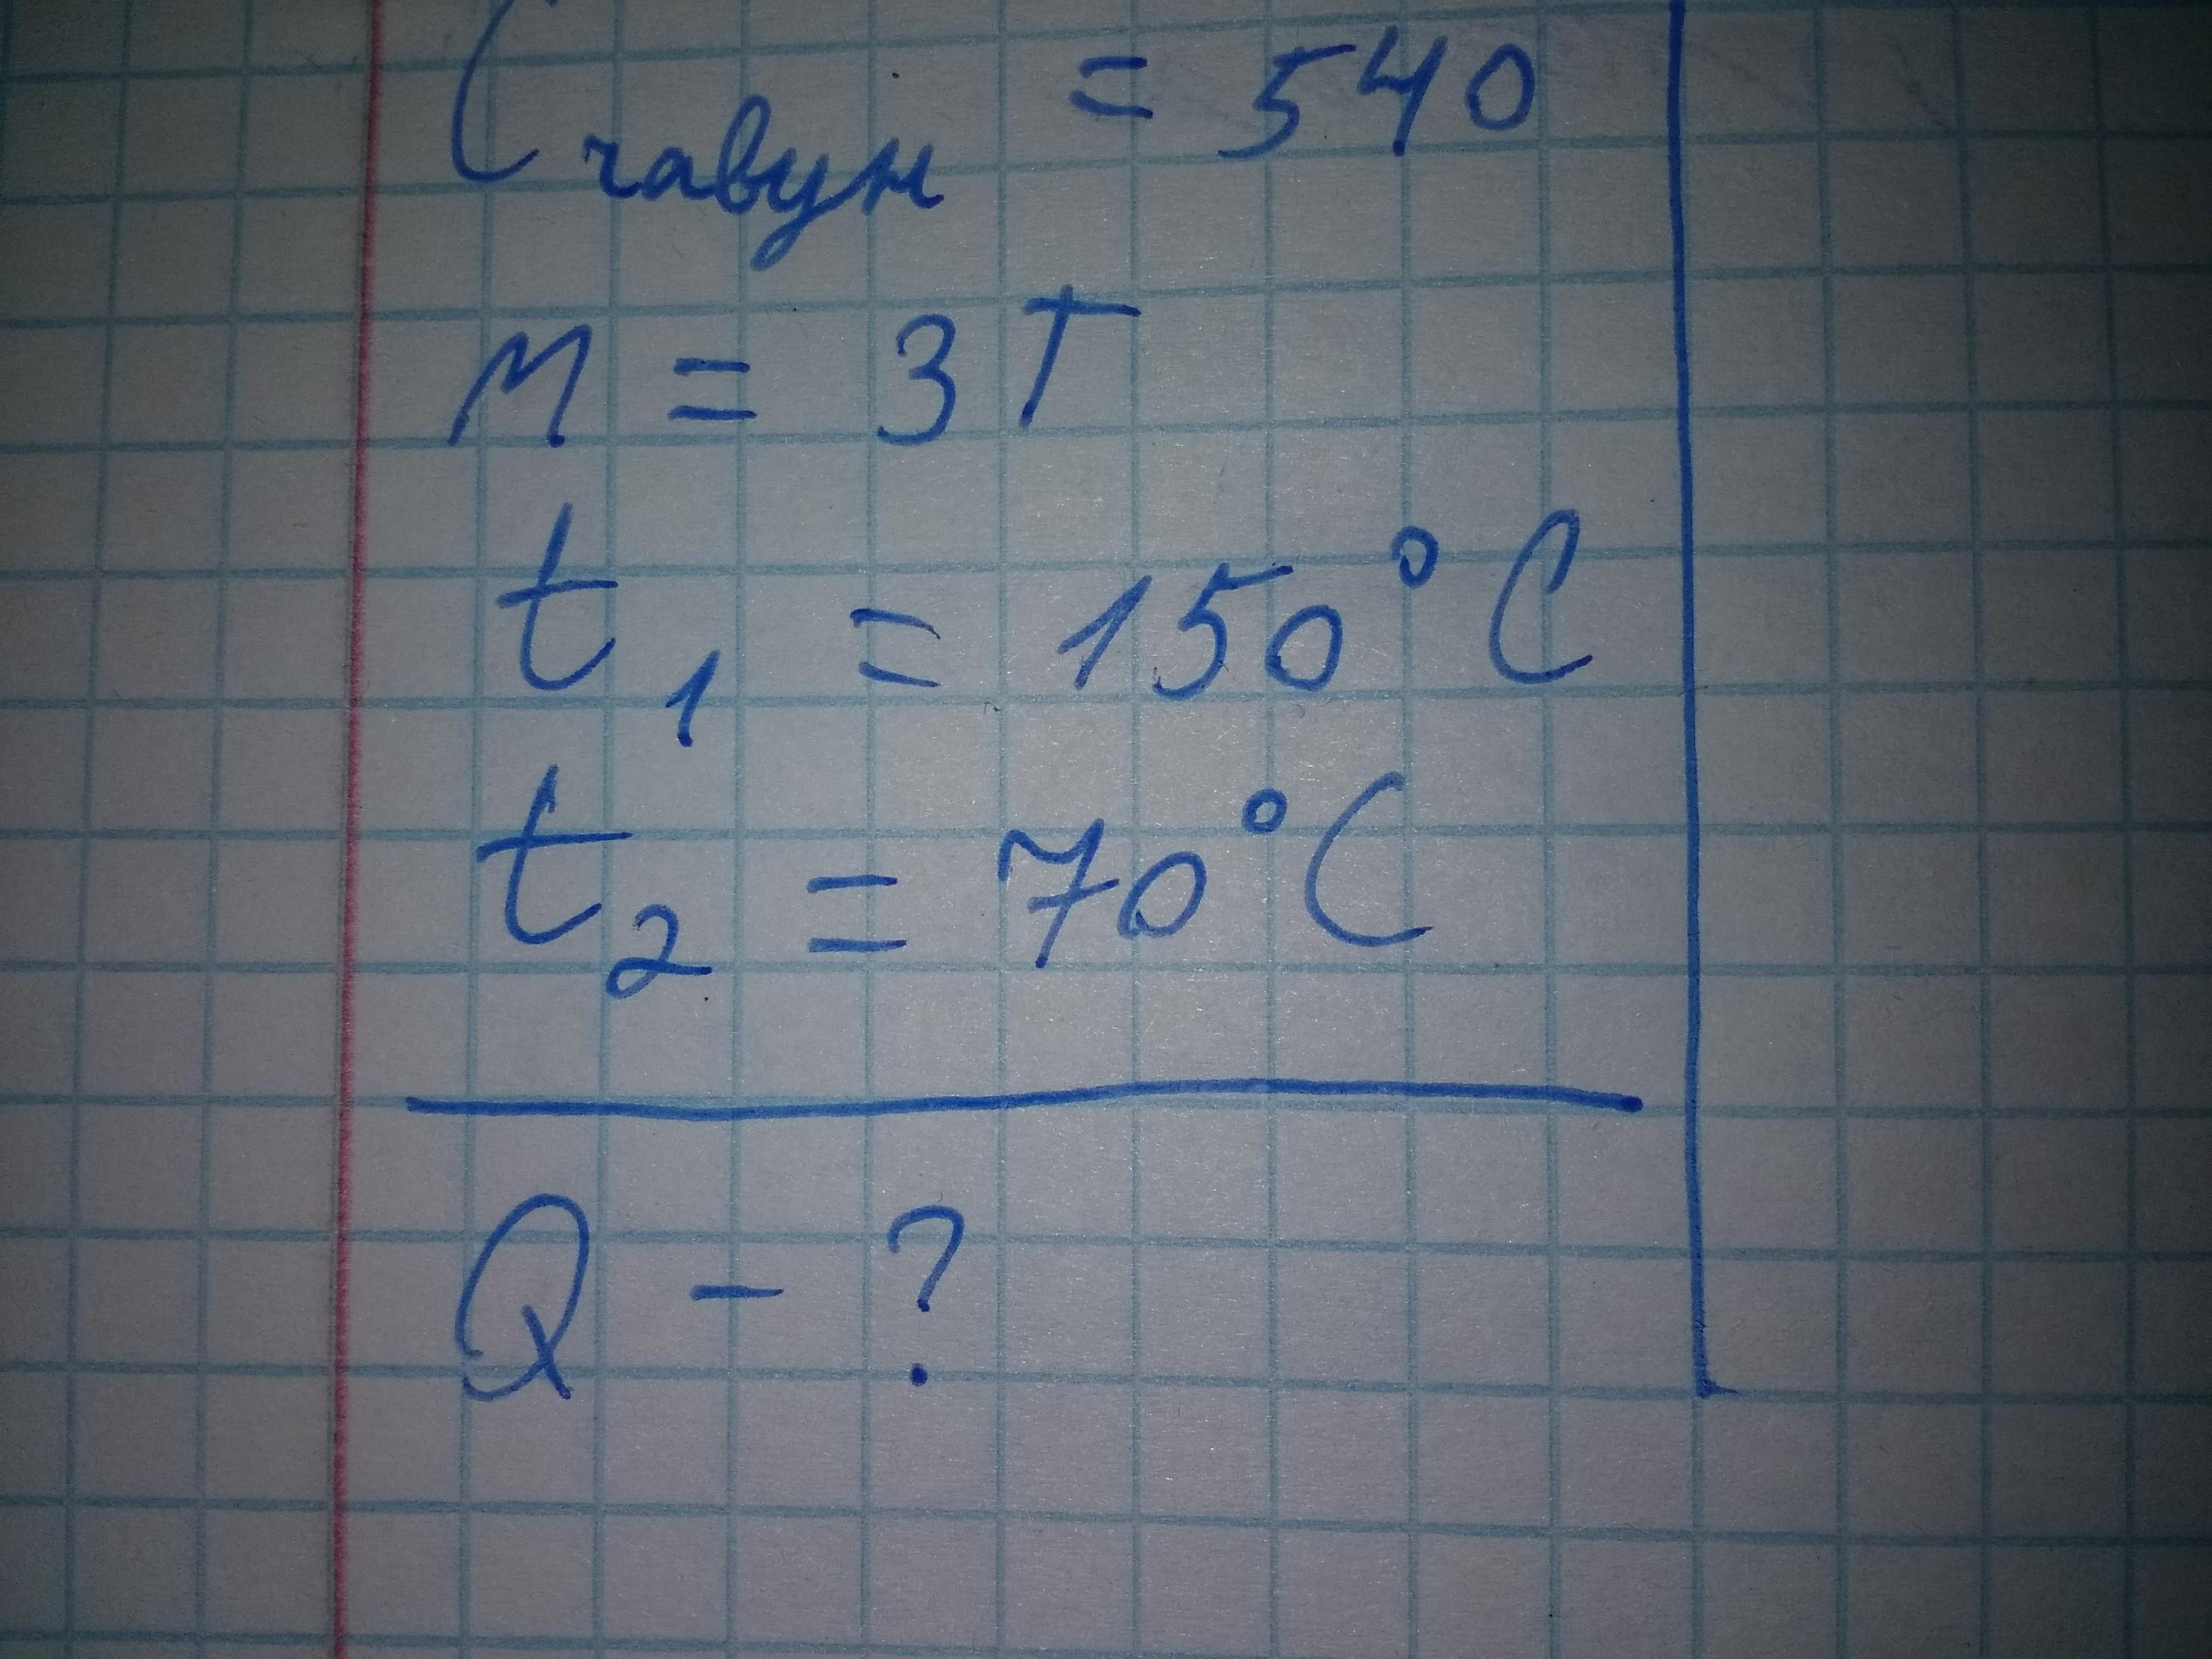 C чавун = 540
m = 3 T
t₁ = 150°C
t₂ = 70°C
Q - ?